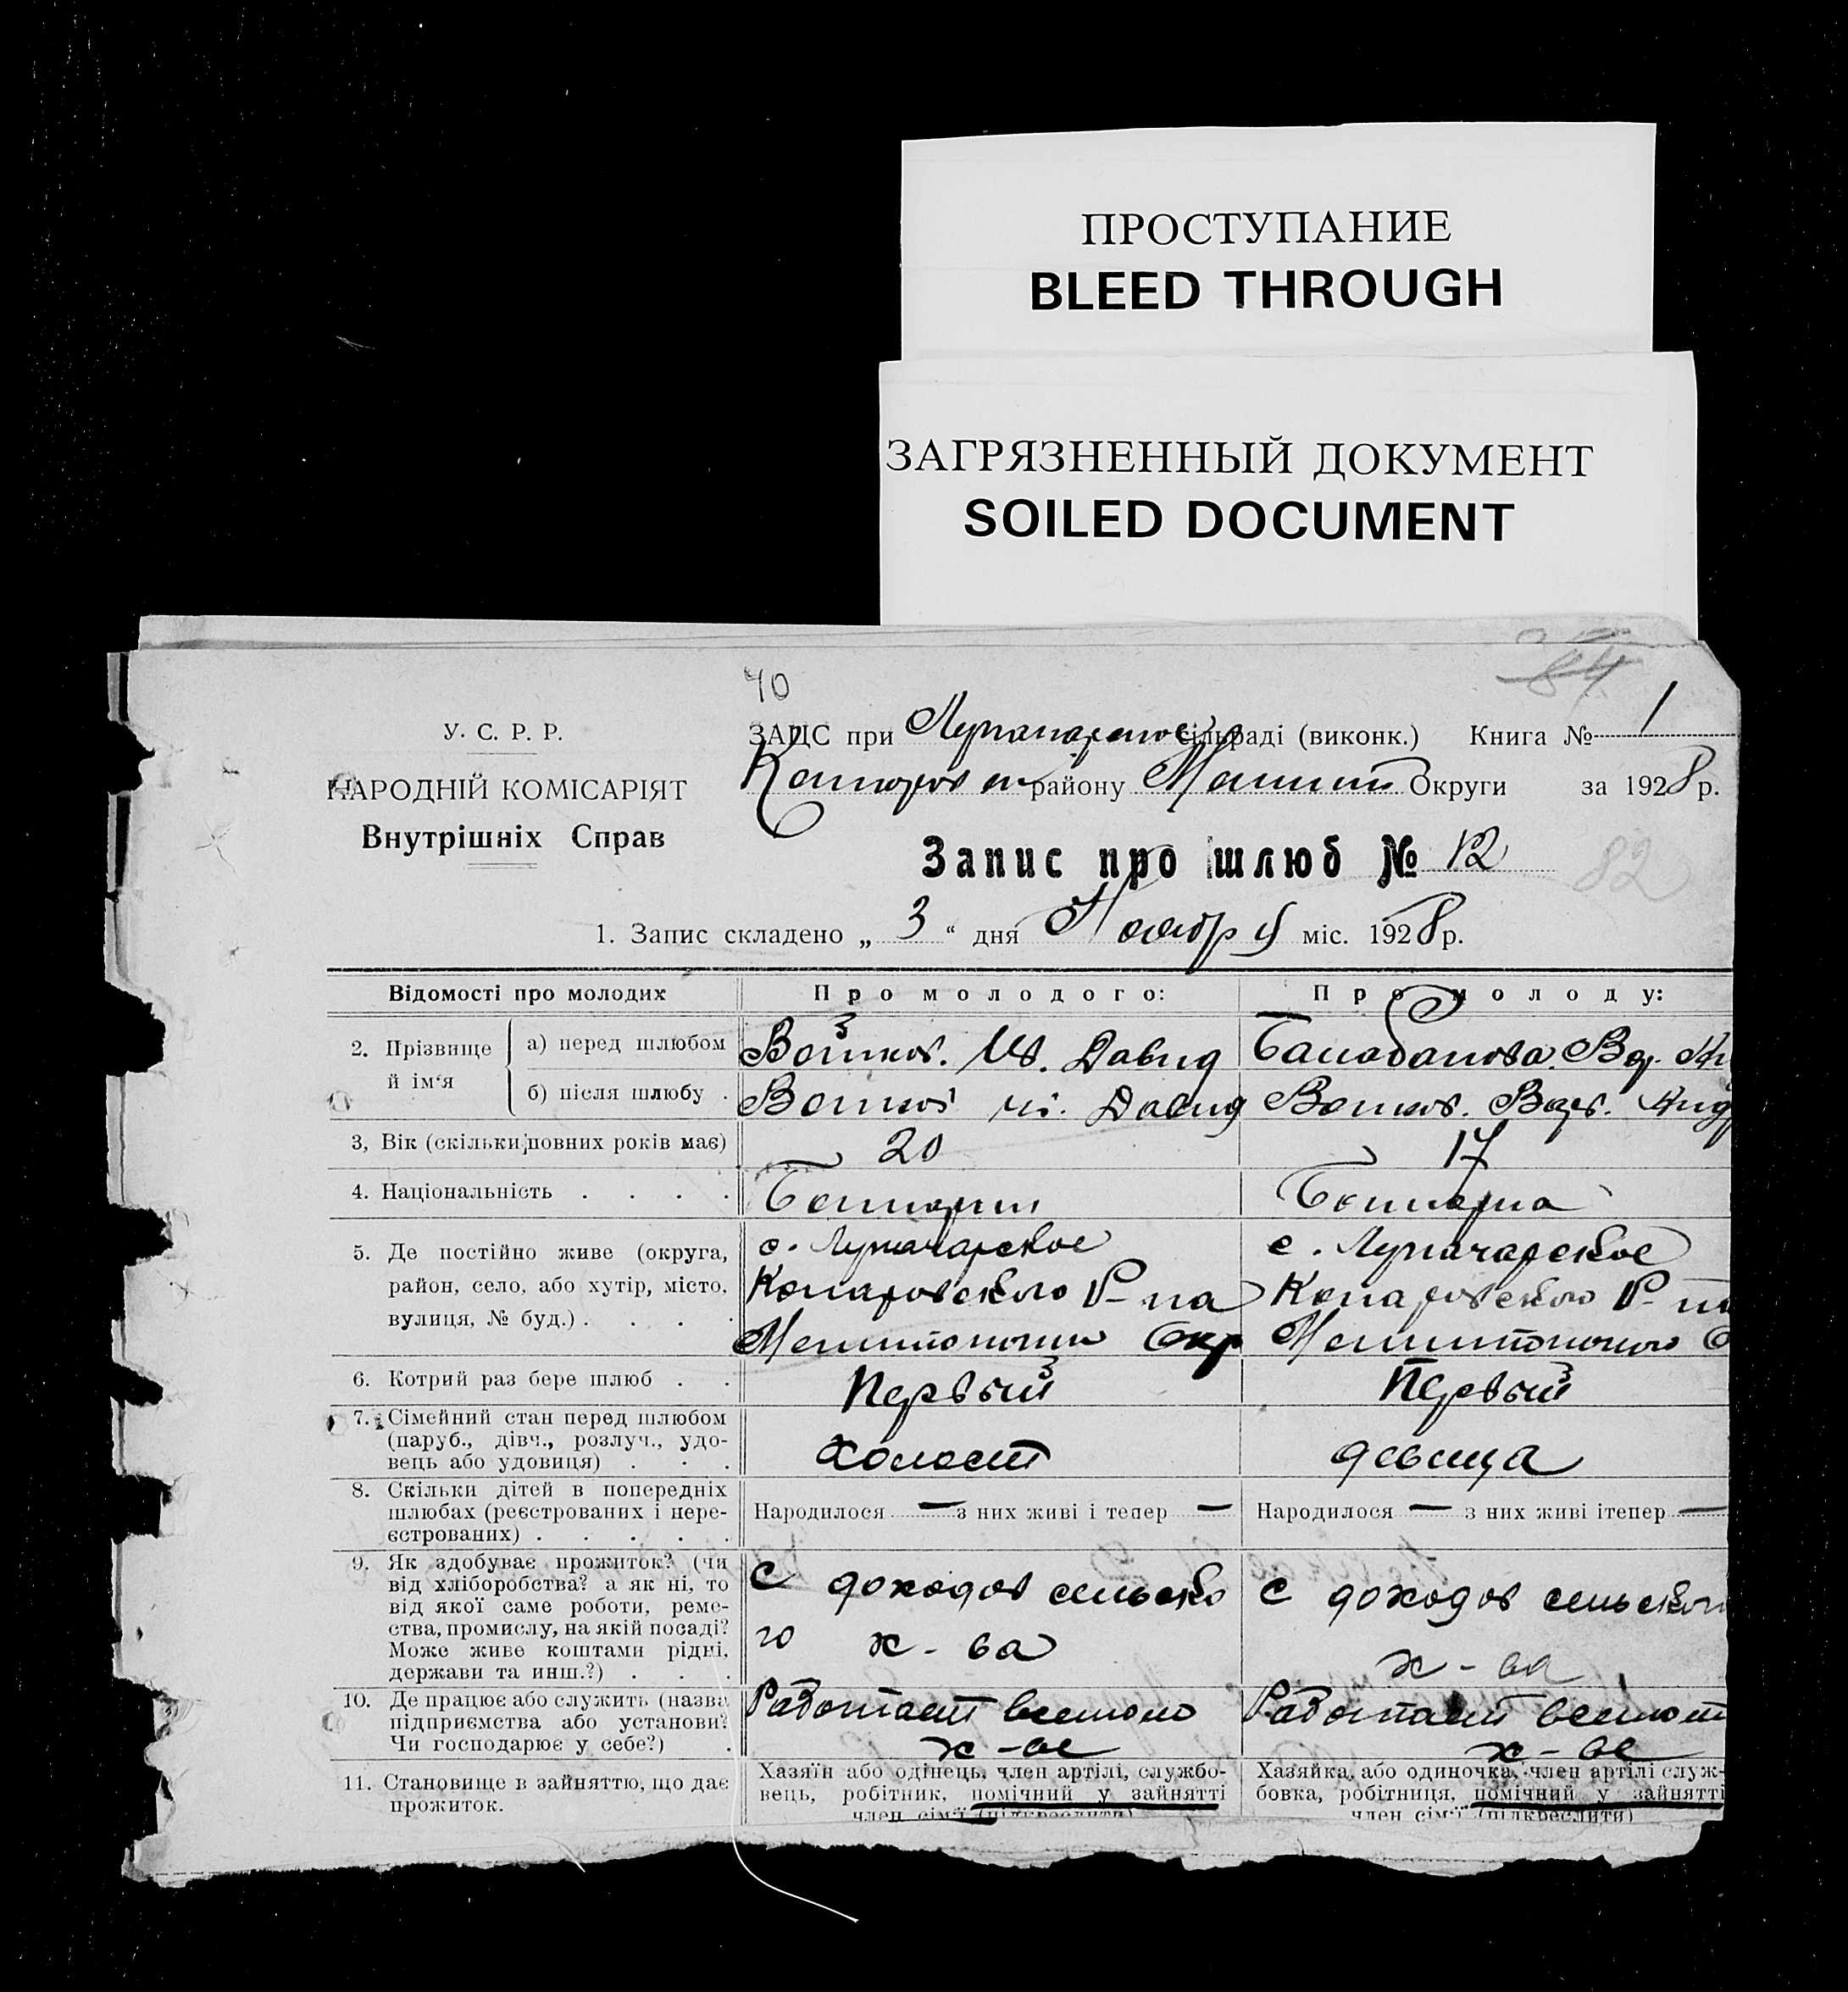 ПРОСТУПАНИЕ
BLEED THROUGH
ЗАГРЯЗНЕННЫЙ ДОКУМЕНТ
SOILED DOCUMENT
40
84
У. С. Р. Р.
ЗАПИС при сільраді (виконк.) Книга № 1
НАРОДНІЙ КОМІСАРІЯТ
району Округи за 1928 р.
Внутрішніх Справ
Запис про шлюб № 12
82
1. Запис складено „ 3 “ дня Ноября міс. 1928 р.
Відомості про молодих
Про молодого:
Про молоду:
2. Прізвище й ім‘я
а) перед шлюбом
Войков. Ив. Давид
Балабанова. Вар.
б) після шлюбу .
Войков Ив. Давид
Войков. Варв. Анд
3, Вік (скільки повних років має)
20
17
4. Національність . . . .
Болгарин
Болгарка
5. Де постійно живе (округа,
район, село, або хутір, місто,
вулиця, № буд.) . . . .
с. Луначарское
Комаровского Р-на
Мелитопольск Окр
с. Луначарское
Комаровского Р-на
Мелитопольского О
6. Котрий раз бере шлюб . .
Первый
Первый
7. Сімейний стан перед шлюбом
(паруб., дівч., розлуч., удо-
вець або удовиця) . . .
холост
девица
8. Скільки дітей в попередніх
шлюбах (реєстрованих і нере-
єстрованих) . . . . .
Народилося — з них живі і тепер —
Народилося — з них живі ітепер —
9. Як здобуває прожиток? (чи
від хліборобства? а як ні, то
від якої саме роботи, реме-
ства, промислу, на якій посаді?
Може живе коштами рідні,
держави та инш.?) . . .
С доходов сельско
го х-ва
С доходов сельского
х-ва
10. Де працює або служить (назва
підприємства або установи?
Чи господарює у себе?) .
Работает
х-ве
Работает
х-ве
11. Становище в зайняттю, що дає
прожиток.
Хазяїн або одінець, член артілі, службо-
вець, робітник, помічний у зайнятті
член сім‘ї (підкреслити)
Хазяйка, або одиночка, член артілі служ-
бовка, робітниця, помічний у зайнятті
член сім‘ї (підкреслити)